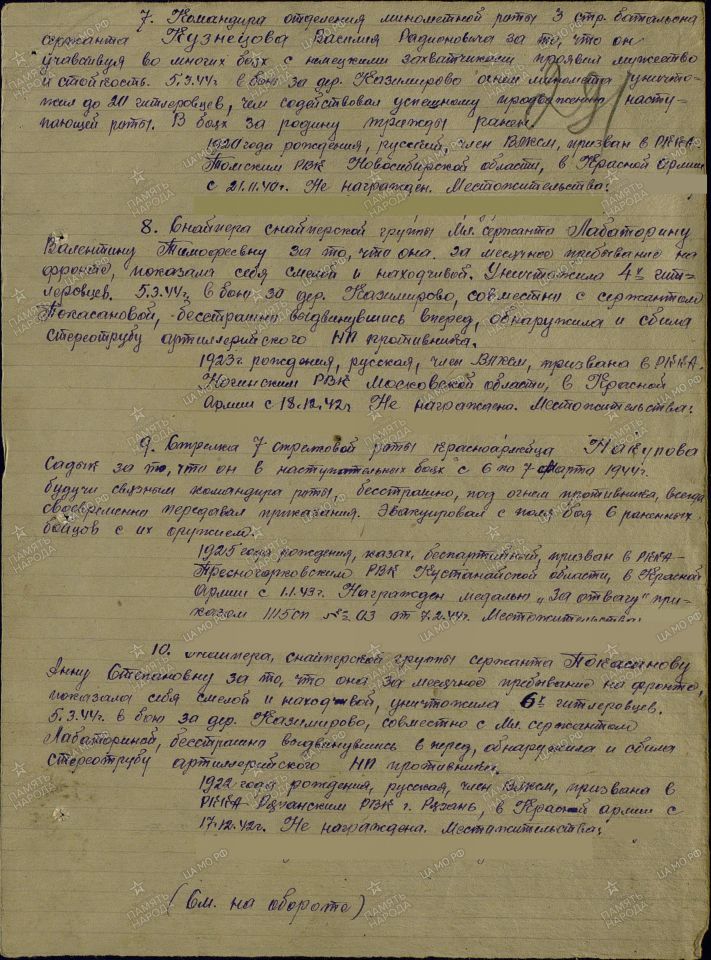 7. Командира отделения минометной роты 3 стр. батальона
сержанта Кузнецова Василия Радионовича за то, что он
учавствуя во многих боях с немецкими захватчиками проявил мужество
и стойкость. 5.3.44г. в бою за дер. Казимирово огнем миномета уничто-
жил до 20 гитлеровцев, чем содействовал успешному продвижению насту-
пающей роты. В боях за родину трижды ранен.
1920 года рождения, русский, член ВЛКСМ, призван в РККА-
Томским РВК Новосибирской области, в Красной Армии
с 21.11.40г. Не награжден. Местожительства:
8. Снайпера снайперской группы Мл. сержанта Лабаторину
Валентину Тимофеевну за то, что она за месячное пребывание на
фронте, показала себя смелой и находчивой. Уничтожила 4х гит-
леровцев. 5.3.44г. в бою за дер. Казимирово, совместно с сержантом
Покасановой, бесстрашно выдвинувшись вперед, обнаружила и сбила
стереотрубу артиллерийского НП противника.
1923г рождения, русская, член ВЛКСМ, призвана в РККА-
Ногинским РВК Московской области, в Красной
Армии с 18.12.42г Не награждена. Местожительства:
9. Стрелка 7 стрелковой роты красноармейца Накупова
Садык за то, что он в наступательных боях с 6 по 7 Марта 1944г.
будучи связным командира роты, бесстрашно, под огнем противника, всегда
своевременно передавал приказания. Эвакуировал с поля боя 6 раненных
бойцов с их оружием.
1925 года рождения, казах, беспартийный, призван в РККА-
Пресногорьковским РВК Кустанайской области, в Красной
Армии с 1.1.43г. Награжден медалью „За отвагу" при-
казом 1115сп № 03 от 7.2.44г. Местожительство:
10. Снайпера, снайперской группы сержанта Покасанову
Анну Степановну за то, что она за месячное пребывание на фронте,
показала себя смелой и находчивой, уничтожила 6х гитлеровцев.
5.3.44г. в бою за дер. Казимирово, совместно с Мл. сержантом
Лабаториной, бесстрашно выдвинувшись вперед, обнаружила и сбила
стереотрубу артиллерийского НП противника.
1922 года рождения, русская, член ВЛКСМ, призвана в
РККА Рязанским РВК г. Рязань, в Красной Армии с
17.12.42г. Не награждена. Местожительства:
(См. на обороте)